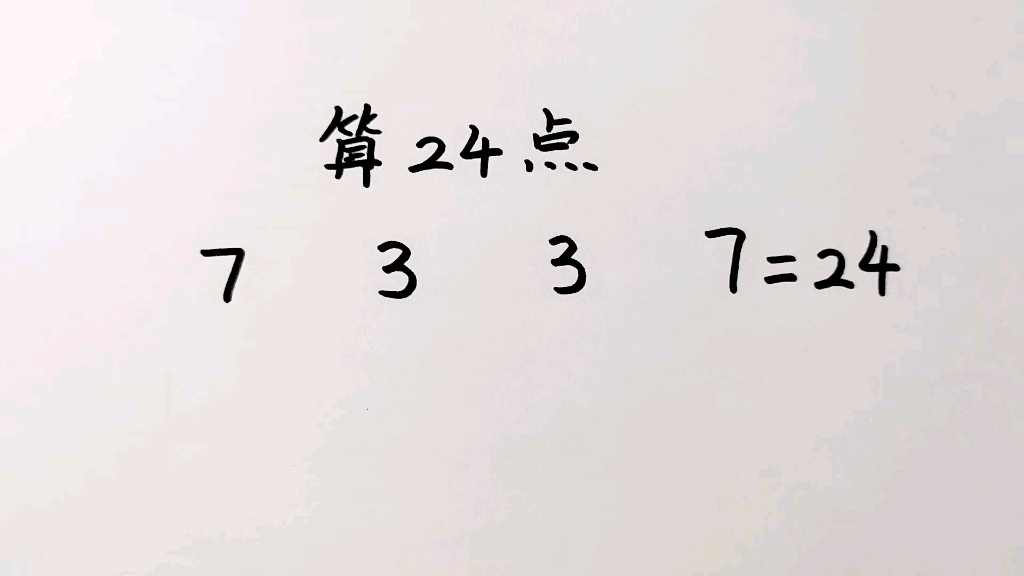 算24点
7 3 3 7=24